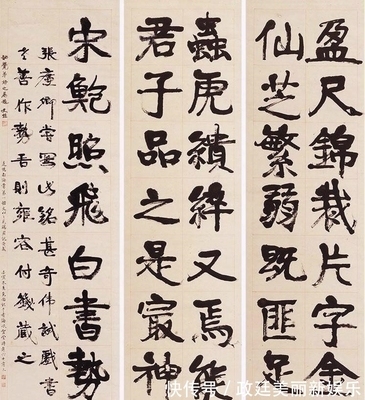 盈尺錦裁片字金
仙芝繁弱既匪足
蟲虎續綷又焉能
君子品之是㝡神
宋鮑照飛白書勢
張廉卿嘗寫此銘甚奇偉試戲書
之善作勢吾則雍容付籤藏之
快传号 / 政廷美丽新娱乐